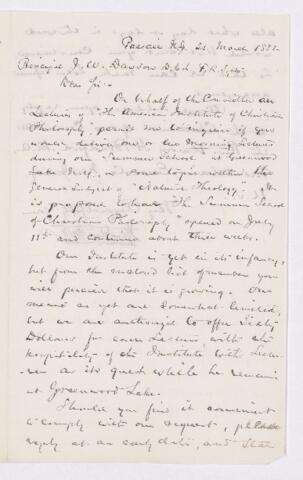 Passaic N.J. 21 March 1882
Principal J. W. Dawson D.L.d. F.R.S. &c
Dear Sir:-
On behalf of the Committee on
Lectures of "The American Institute of Christian
Philosophy, permit me to enquire if you
will deliver one or two morning lectures
during our "Summer School" at Greenwood
Lake N.Y., on some topic within the
General subject of "Natural Theology." It
is proposed to have the Summer School
of Christian Philosophy opened on July
11th and continued about three weeks.
Our Institute is yet in its infancy,
but from the enclosed list of members you
will perceive that it is growing. Our
means as yet are somewhat limited,
but we are authorized to offer Sixty
Dollars for each Lecture, with the
hospitality of the Institute to the Lectu-
rer as its guest while he remains
at Greenwood Lake.
Should you find it convenient
to comply with our request, please
reply at an early date, and state